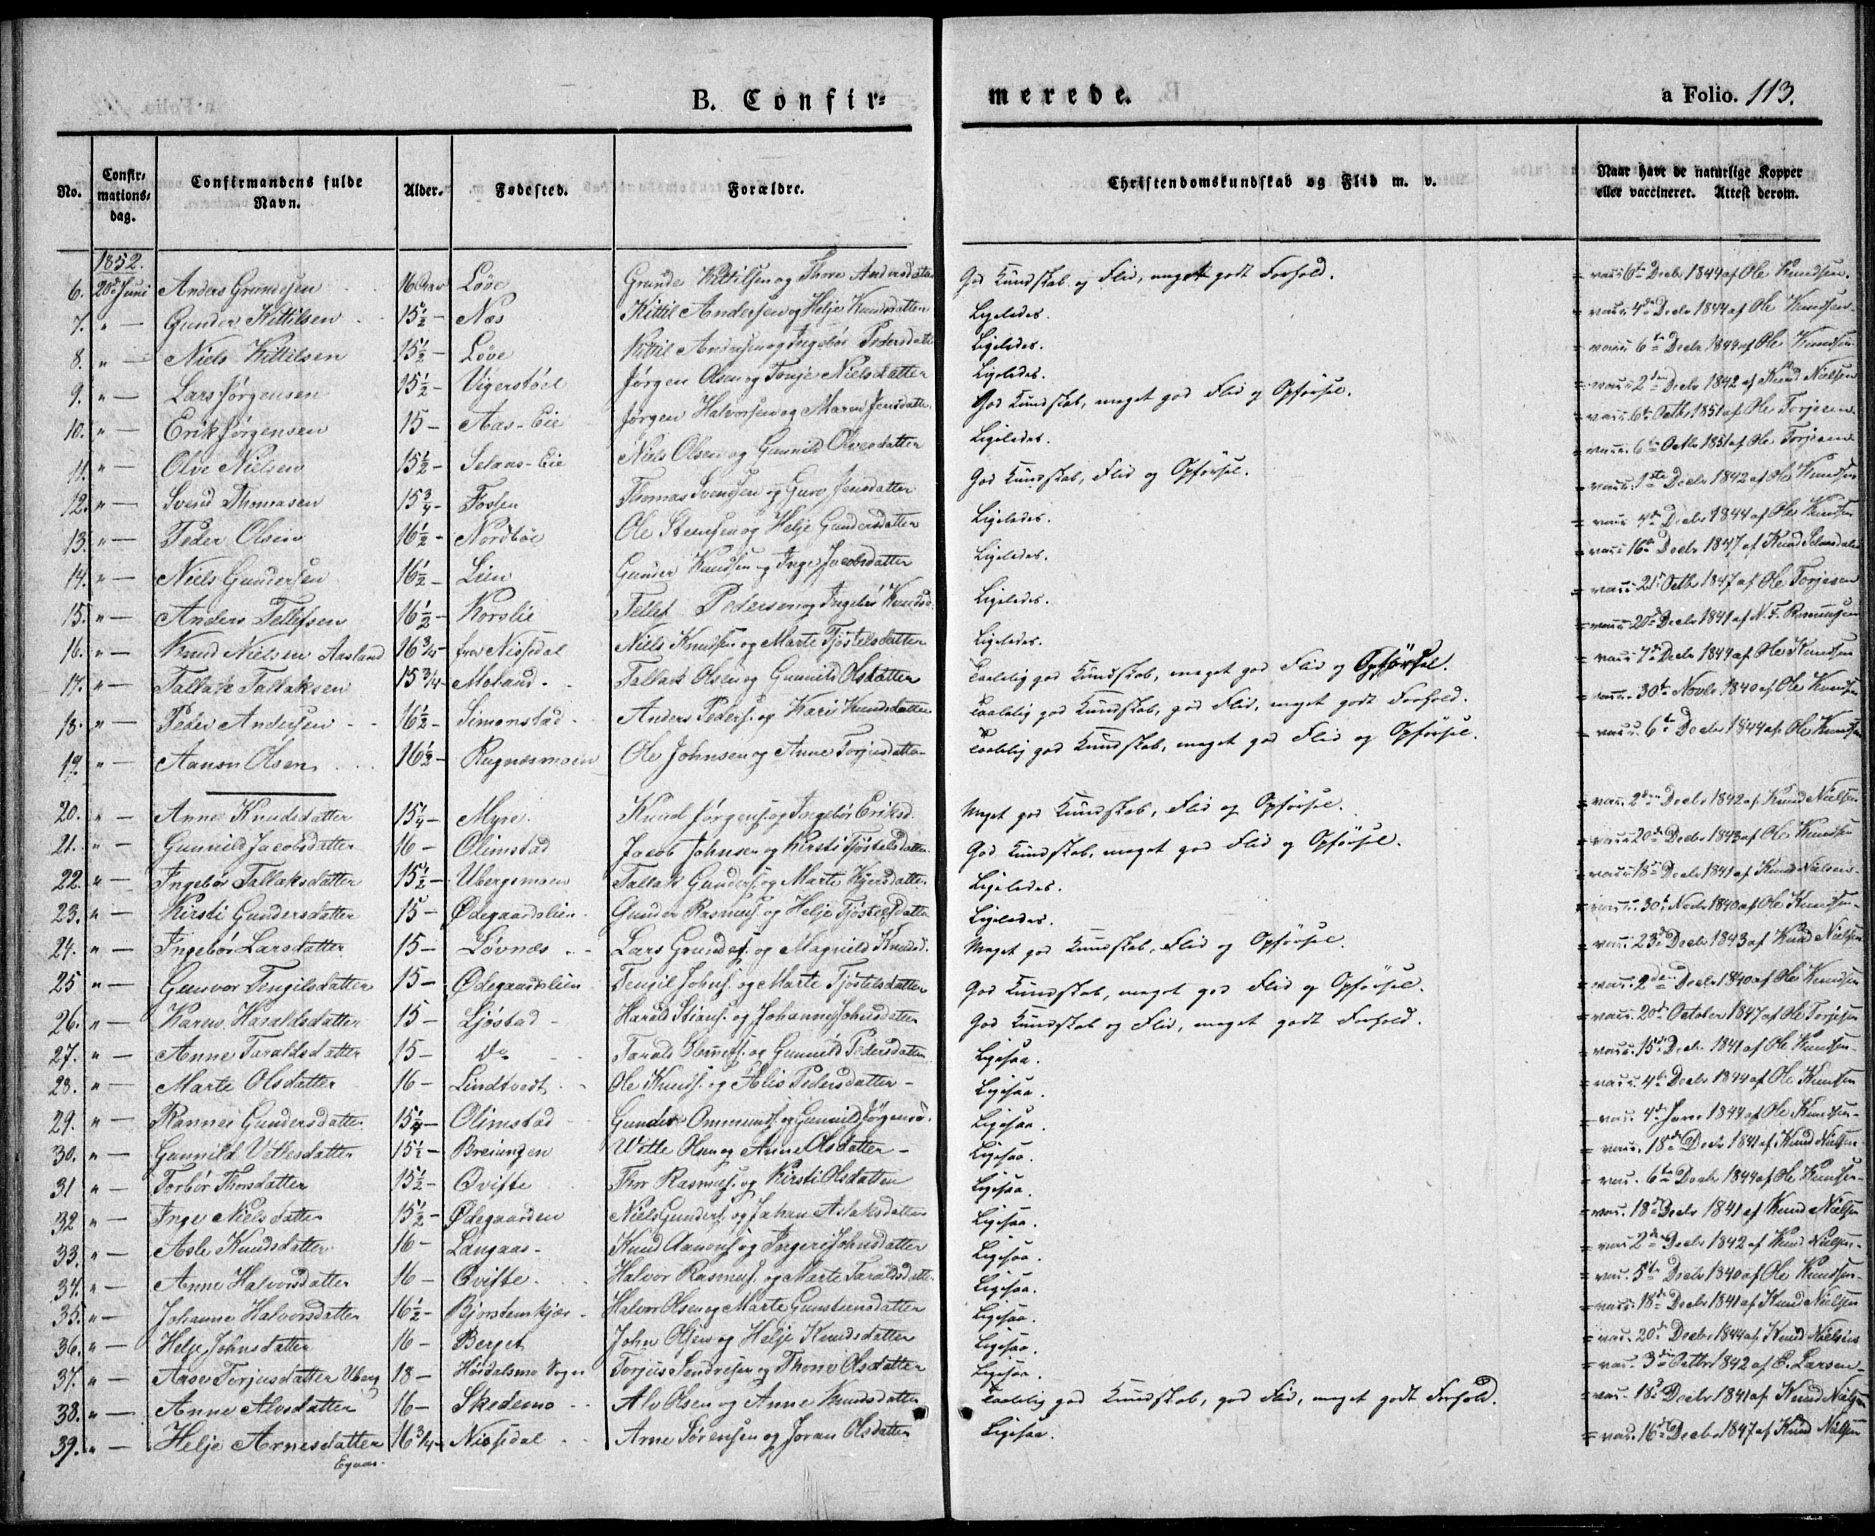 B. Confir=
merede.
a Folio. 113.
No. Confir-mations-dag. Confirmandens fulde Navn. Alder. Fødested. Forældre. Christendomskundskab og Flid m. v. Naar have de naturlige Kopper eller vaccineret. Attest derom.
1852.
6. 20de Juni Anders Grundesen 16 Løve Grunde Kittilsen og Thore Andersdatter God Kundskab og Flid, meget godt Forhold. = vacc. 6te Decbr 1844 af Ole Knudsen.
7. " — Gunder Kittilsen 15½ — Næs Kittil Andersen og Helje Knudsdatter Ligeledes. = vacc. 4de Decbr 1844 af Ole Knudsen
8. " — Niels Kittilsen 15½ — Løve Kittil Andersen og Ingebør Pedersdatter Ligeledes. = vacc. 6te Decbr 1844 af Ole Knudsen
9. " — Lars Jørgensen 15½ — Vigerstøel Jørgen Olsen og Tonje Nielsdatter Ligeledes. = vacc. 2den Decbr 1842 af Knud Nielsen
10. " — Erik Jørgensen 15 — Aas-Eie Jørgen Halvorsen og Maren Jensdatter God Kundskab, meget god Flid og Opførsel. = vacc. 6te Octbr 1851 af Ole Torjesen
11. " — Olve Nielsen 15½ — Selaas-Eie Niels Olsen og Gunnild Olvesdatter Ligeledes. = vacc. 6te Octbr 1851 af Ole Torjesen
12. " — Svend Thomasen 15¾ — Fossen Thomas Svendsen og Guro Jensdatter God Kundskab, Flid og Opførsel. = vacc. 1ste Decbr 1842 af Ole Knudsen
13. " — Peder Olsen 16½ — Nordbøe Ole Stensen og Helje Gundersdatter Ligeledes. = vacc. 4de Decbr 1844 af Ole Knudsen
14. " — Niels Gundersen 16½ — Lien Gunder Knudsen og Inge Jacobsdatter Ligeledes. = vacc. 16de Decbr 1847 af Knud Selaasdalen
15. " — Anders Tellefsen 16½ — Korslie Tellef Pedersen og Ingebør Knudsd. Ligeledes. = vacc. 21de Octbr 1847 af Ole Torjesen
16. " — Knud Nielsen Aasland 16¾ — fra Nissedal Niels Knudsen og Marte Tjøstelsdatter Ligeledes. = vacc. 20de Decbr 1841 af N. F. Rasmussen
17. " — Tallak Tallaksen 15¾ — Moland Tallak Olsen og Gunnild Olsdatter Taalelig god Kundskab, meget god Flid og Opførsel. = vacc. 7de Decbr 1844 af Ole Knudsen
18. " — Peder Andersen 16½ — Simonstad Anders Peders. og Kari Knudsdatter Taalelig god Kundskab, god Flid, meget godt Forhold. = vacc. 30te Novbr 1840 af Ole Knudsen
19. " — Aanon Olsen 16½ — Rugnæsmoen Ole Johnsen og Anne Torjusdatter Taalelig god Kundskab, meget god Flid og Opførsel. = vacc. 6te Decbr 1844 af Ole Knudsen
20. " — Anne Knudsdatter 15¼ — Myre Knud Jørgens. og Ingebør Eriksd. Meget god Kundskab, Flid og Opførsel. = vacc. 2den Decbr 1842 af Knud Nielsen
21. " — Gunnild Jacobsdatter 16 — Olimstad Jacob Johnsen og Kirsti Tjøstelsdatter God Kundskab, meget god Flid og Opførsel. = vacc. 20de Decbr 1843 af Ole Knudsen
22. " — Ingebør Tallaksdatter 15½ — Ubergsmoen Tallak Gunders. og Marte Kjersdatter Ligeledes. = vacc. 18de Decbr 1841 af Knud Nielsen
23. " — Kirsti Gundersdatter 15 — Ødegaardslien Gunder Rasmus. og Helje Tjøstelsdatter Ligeledes. = vacc. 30te Novbr 1840 af Ole Knudsen
24. " — Ingebør Larsdatter 15 — Løvnæs Lars Grundes. og Magnild Knudsd. Meget god Kundskab, Flid og Opførsel. = vacc. 23de Decbr 1843 af Knud Nielsen
25 " — Gunvor Tengilsdatter 15 — Ødegaardslien Tengil Johns. og Marte Tjøstelsdatter God Kundskab, meget god Flid og Opførsel. = vacc. 2den Decbr 1840 af Ole Knudsen
26. " — Karen Haraldsdatter 15 — Ljøstad Harald Stians. og Johanne Johnsdatter God Kundskab og Flid, meget godt Forhold. = vacc. 20de October 1847 af Ole Torjesen
27. " — Anne Taraldsdatter 15 — Do Tarald Olmens. og Gunnild Pedersdatter Ligesaa. = vacc. 15de Decbr 1841 af Ole Knudsen
28. " — Marte Olsdatter 16 — Lindtvedt Ole Knuds. og Alis Pedersdatter — Ligesaa. = vacc. 4de Decbr 1844 af Ole Knudsen
29. " — Rannei Gundersdatter 15¼ — Olimstad Gunder Ommunds. og Gunnild Jørgensd. Ligesaa. — vacc. 4de Janr 1844 af Ole Knudsen
30. " — Gunnild Vetlesdatter 15½ — Breiungen Wetle Olsen og Anne Olsdatter — Ligesaa. — vacc. 18de Decbr 1841 af Knud Nielsen
31 " — Torbør Thorsdatter 15½ — Qvifte Thor Rasmus. og Kirsti Olsdatter Ligesaa. = vacc. 6te Decbr 1844 af Ole Knudsen
32 " — Inge Nielsdatter 15½ — Ødegaarden Niels Gunders. og Johan Aslaksdatter Ligesaa. = vacc. 18de Decbr 1841 af Knud Nielsen
33. " — Asle Knudsdatter 16 — Langaas Knud Aanons. og Ingeri Johnsdatter Ligesaa. = vacc. 2den Decbr 1842 af Knud Nielsen
34. " — Anne Halvorsdatter 16 — Qvifte Halvor Rasmus. og Marte Taraldsdatter Ligesaa. = vacc. 5te Decbr 1840 af Ole Knudsen
35. " — Johanne Halvorsdatter 16½ — Bjorstemkjær Halvor Olsen og Marte Gunstensdatter Ligesaa. = vacc. 18de Decbr 1841 af Knud Nielsen
36. " — Helje Johnsdatter 16 — Berget John Olsen og Helje Knudsdatter Ligesaa. = vacc. 20de Decbr 1844 af Knud Nielsen
37. " — Aase Torjusdatter Uberg 18 — Hordalsmo Sogn Torjus Sundresen og Thone Olsdatter Ligesaa. = vacc. 3de Octbr 1842 af E. Larsen
38. " — Anne Alvsdatter 16 — Skedemo Alv Olsen og Anne Knudsdatter Taalelig god Kundskab, god Flid, meget godt Forhold. = vacc. 18de Decbr 1841 af Knud Nielsen
39. " — Helje Arnesdatter 16¾ — Nissedal Arne Sørensen og Joran Olsdatter Ligesaa. = vacc. 16de Decbr 1847 af Knud Nielsen